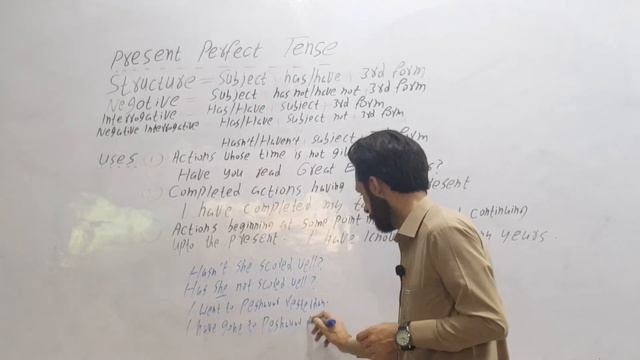 Present Perfect Tense
Structure = Subject has/have 3rd form
Negative = Subject has not/have not 3rd form
Interrogative = Has/Have subject 3rd form
Negative Interrogative Has/Have subject not 3rd form
Hasn't/Haven't subject form
uses 1 Actions whose time is not
Have you read Great
Completed actions having present
I have completed my
Actions beginning at some point continuing
upto the present. I have years.
Hasn't she scored well?
Has she not scored well?
I went to Peshawar Yesterday.
I have gone to Peshawar